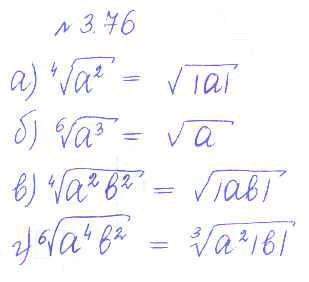 № 3.76
а) ⁴√a² = √|a|
б) ⁶√a³ = √a
в) ⁴√a²b² = √|ab|
г) ⁶√a⁴b² = ³√a²|b|